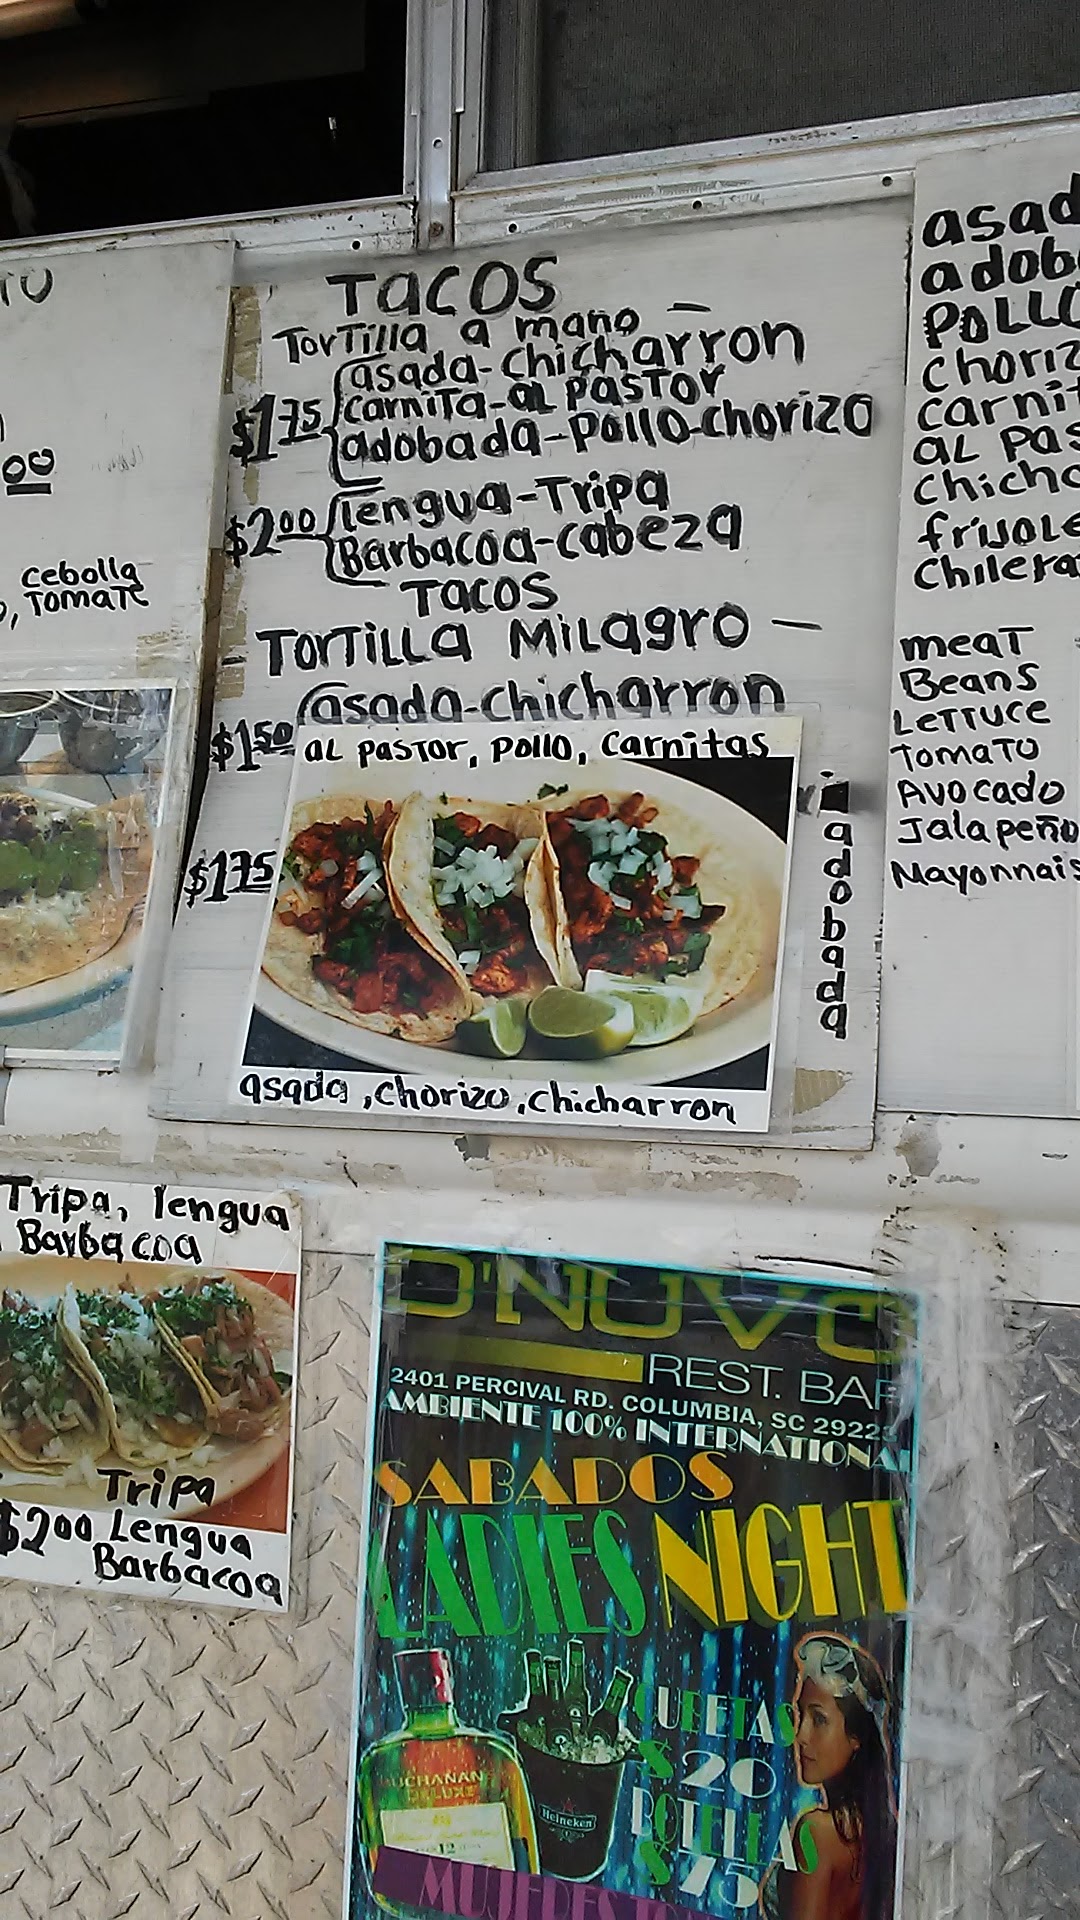 TACOS
TorTilla a mano —
asada-chicharron
$1.75 carniTa-al pasTor
adobada-pollo-chorizo
$2.00 lengua-Tripa
Barbacoa-cabeza
TACOS
TorTiLLa MiLagro —
asada-chicharron
$1.50
aL pasTor, pollo, carnitas
$1.75
adobada
asada, chorizo, chicharron
00
cebolla
, TomaTe
asad
adob
POLLO
choriz
carnit
aL pas
chicha
frijole
chilera
meaT
Beans
LeTTuce
TomaTo
Avocado
Jalapeño
Mayonnais
Tripa, lengua
Barbacoa
Tripa
$2.00 Lengua
Barbacoa
D'NUVO
REST. BAR
2401 PERCIVAL RD. COLUMBIA, SC 29223
AMBIENTE 100% INTERNATIONAL
SABADOS
LADIES NIGHT
CUBETAS
$20
BOTELLAS
$75
BUCHANAN'S
DELUXE
12
Heineken
MUJERES